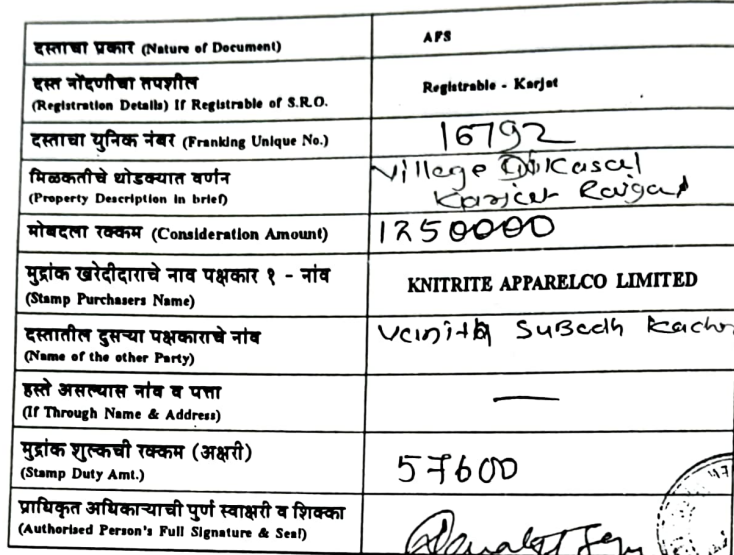 दस्ताचा प्रकार (Nature of Document)
AFS
दस्त नोंदणीचा तपशील
(Registration Details) If Registrable of S.R.O.
Registrable - Karjat
दस्ताचा युनिक नंबर (Franking Unique No.)
16792
मिळकतीचे थोडक्यात वर्णन
(Property Description in brief)
Village Dikasal
Karjat Raigad
मोबदला रक्कम (Consideration Amount)
1250000
मुद्रांक खरेदीदाराचे नाव पक्षकार १ - नांव
(Stamp Purchasers Name)
KNITRITE APPARELCO LIMITED
दस्तातील दुसऱ्या पक्षकाराचे नांव
(Name of the other Party)
Subodh
हस्ते असल्यास नांव व पत्ता
(If Through Name & Address)
—
मुद्रांक शुल्कची रक्कम (अक्षरी)
(Stamp Duty Amt.)
57600
प्राधिकृत अधिकाऱ्याची पुर्ण स्वाक्षरी व शिक्का
(Authorised Person's Full Signature & Seal)